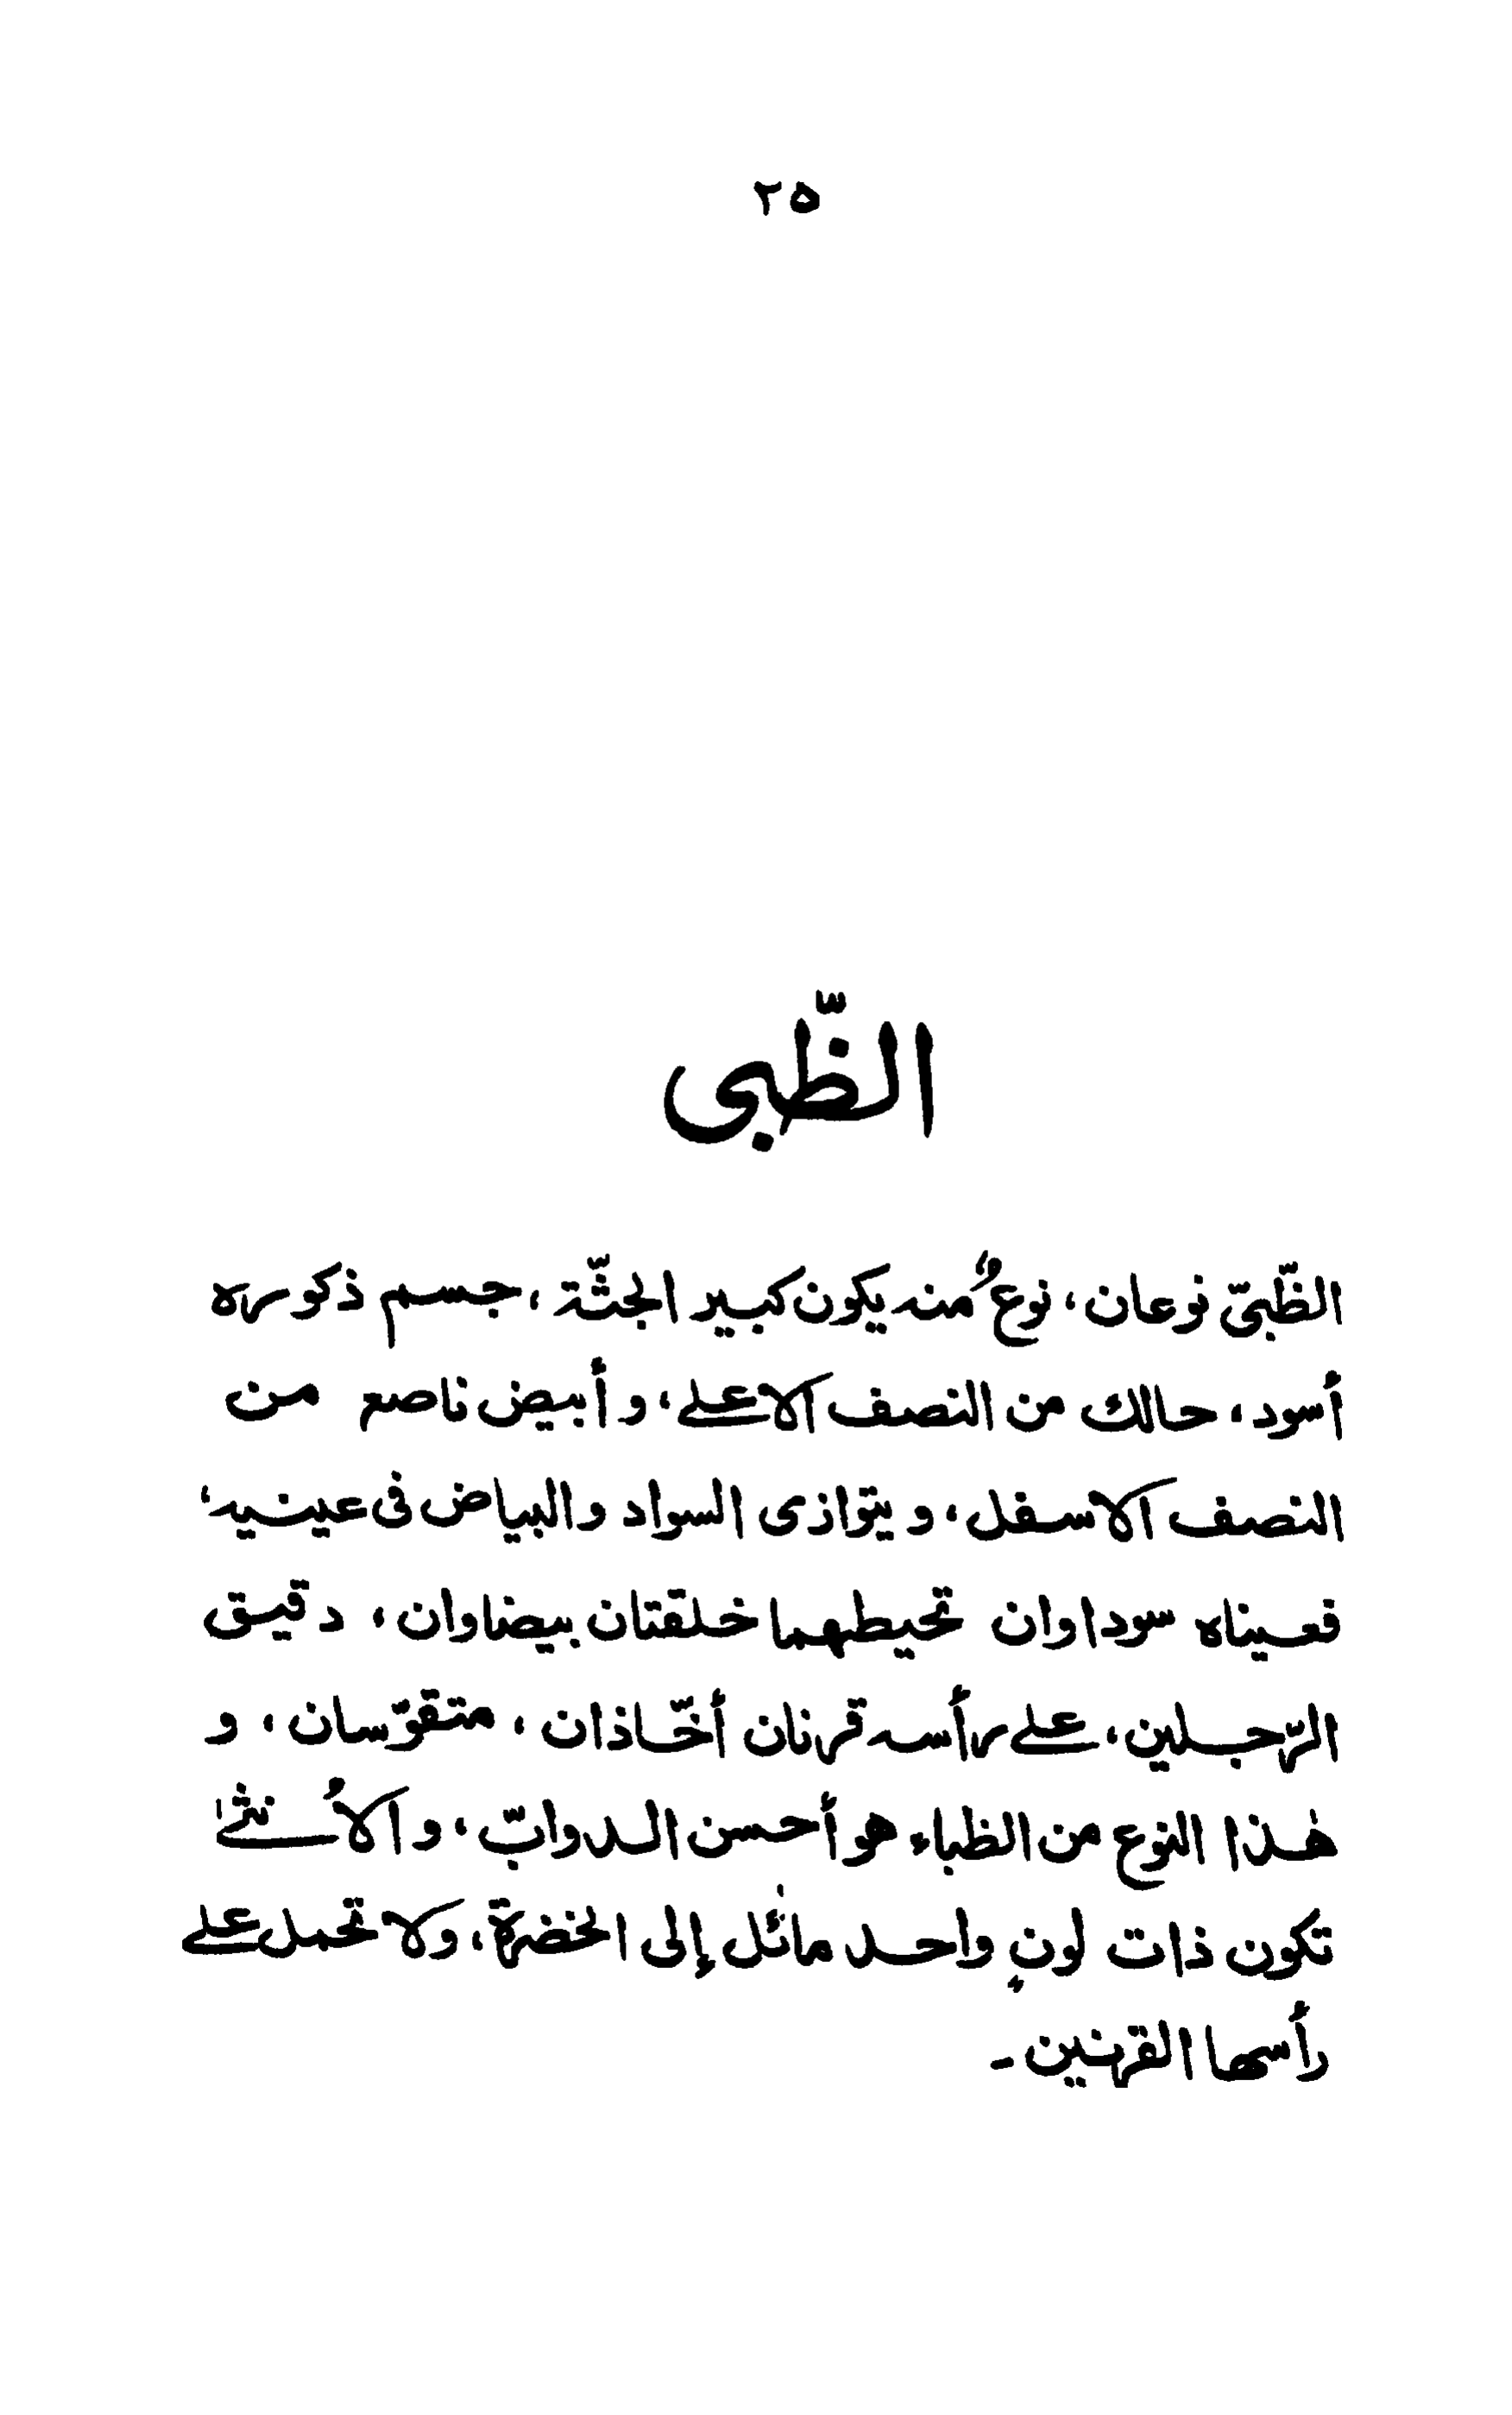 ٢٥
الظّبى
الظّبيّ نوعان، نوعٌ منه يكون كبير الجثّة، جسم ذكوره
أسود، حالك من النصف الاعلى، و أبيض ناصع من
النصف الاسفل، و يتوازى السواد والبياض فى عينيه،
فعيناه سوداوان تحيطهما خلقتان بيضاوان، دقيق
الرّجلين، على رأسه قرنان أخّاذان، متقوّسان، و
هٰذا النوع من الظباء هو أحسن الدوابّ، و الأُنثىٰ
تكون ذات لونٍ واحد مائل إلى الخضرة، ولا تحمل على
رأسها القرنين۔